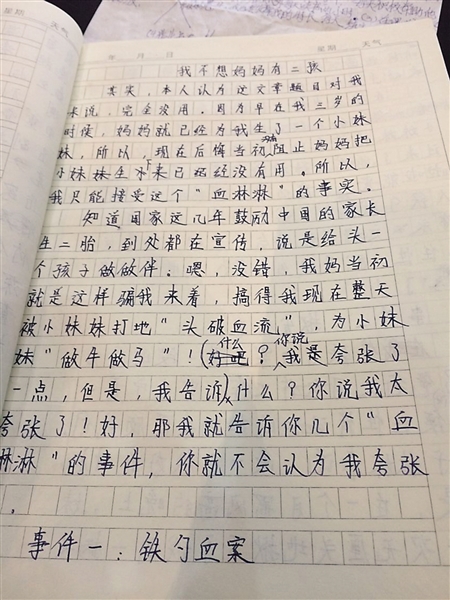 星期 天气
年 月 日 星期 天气
我不想妈妈有二孩
其实,本人认为这文章题目对我
来说,完全没用。因为早在我三岁的
时候,妈妈就已经为我生了一个小妹
妹,所以,现在后悔当初阻止妈妈把
小妹妹生下来已经没有用。所以,
我只能接受这个“血淋淋”的事实。
知道国家这几年鼓励中国的家长
生二胎,到处都在宣传,说是给头一
个孩子做做伴。嗯,没错,我妈当初
就是这样骗我来着,搞得我现在整天
被小妹妹打地“头破血流”,为小妹
妹“做牛做马”!(什么?你说我是夸张了
一点,但是,我告诉)什么?你说我太
夸张了!好,那我就告诉你几个“血
淋淋”的事件,你就不会认为我夸张
。
事件一:铁勺血案